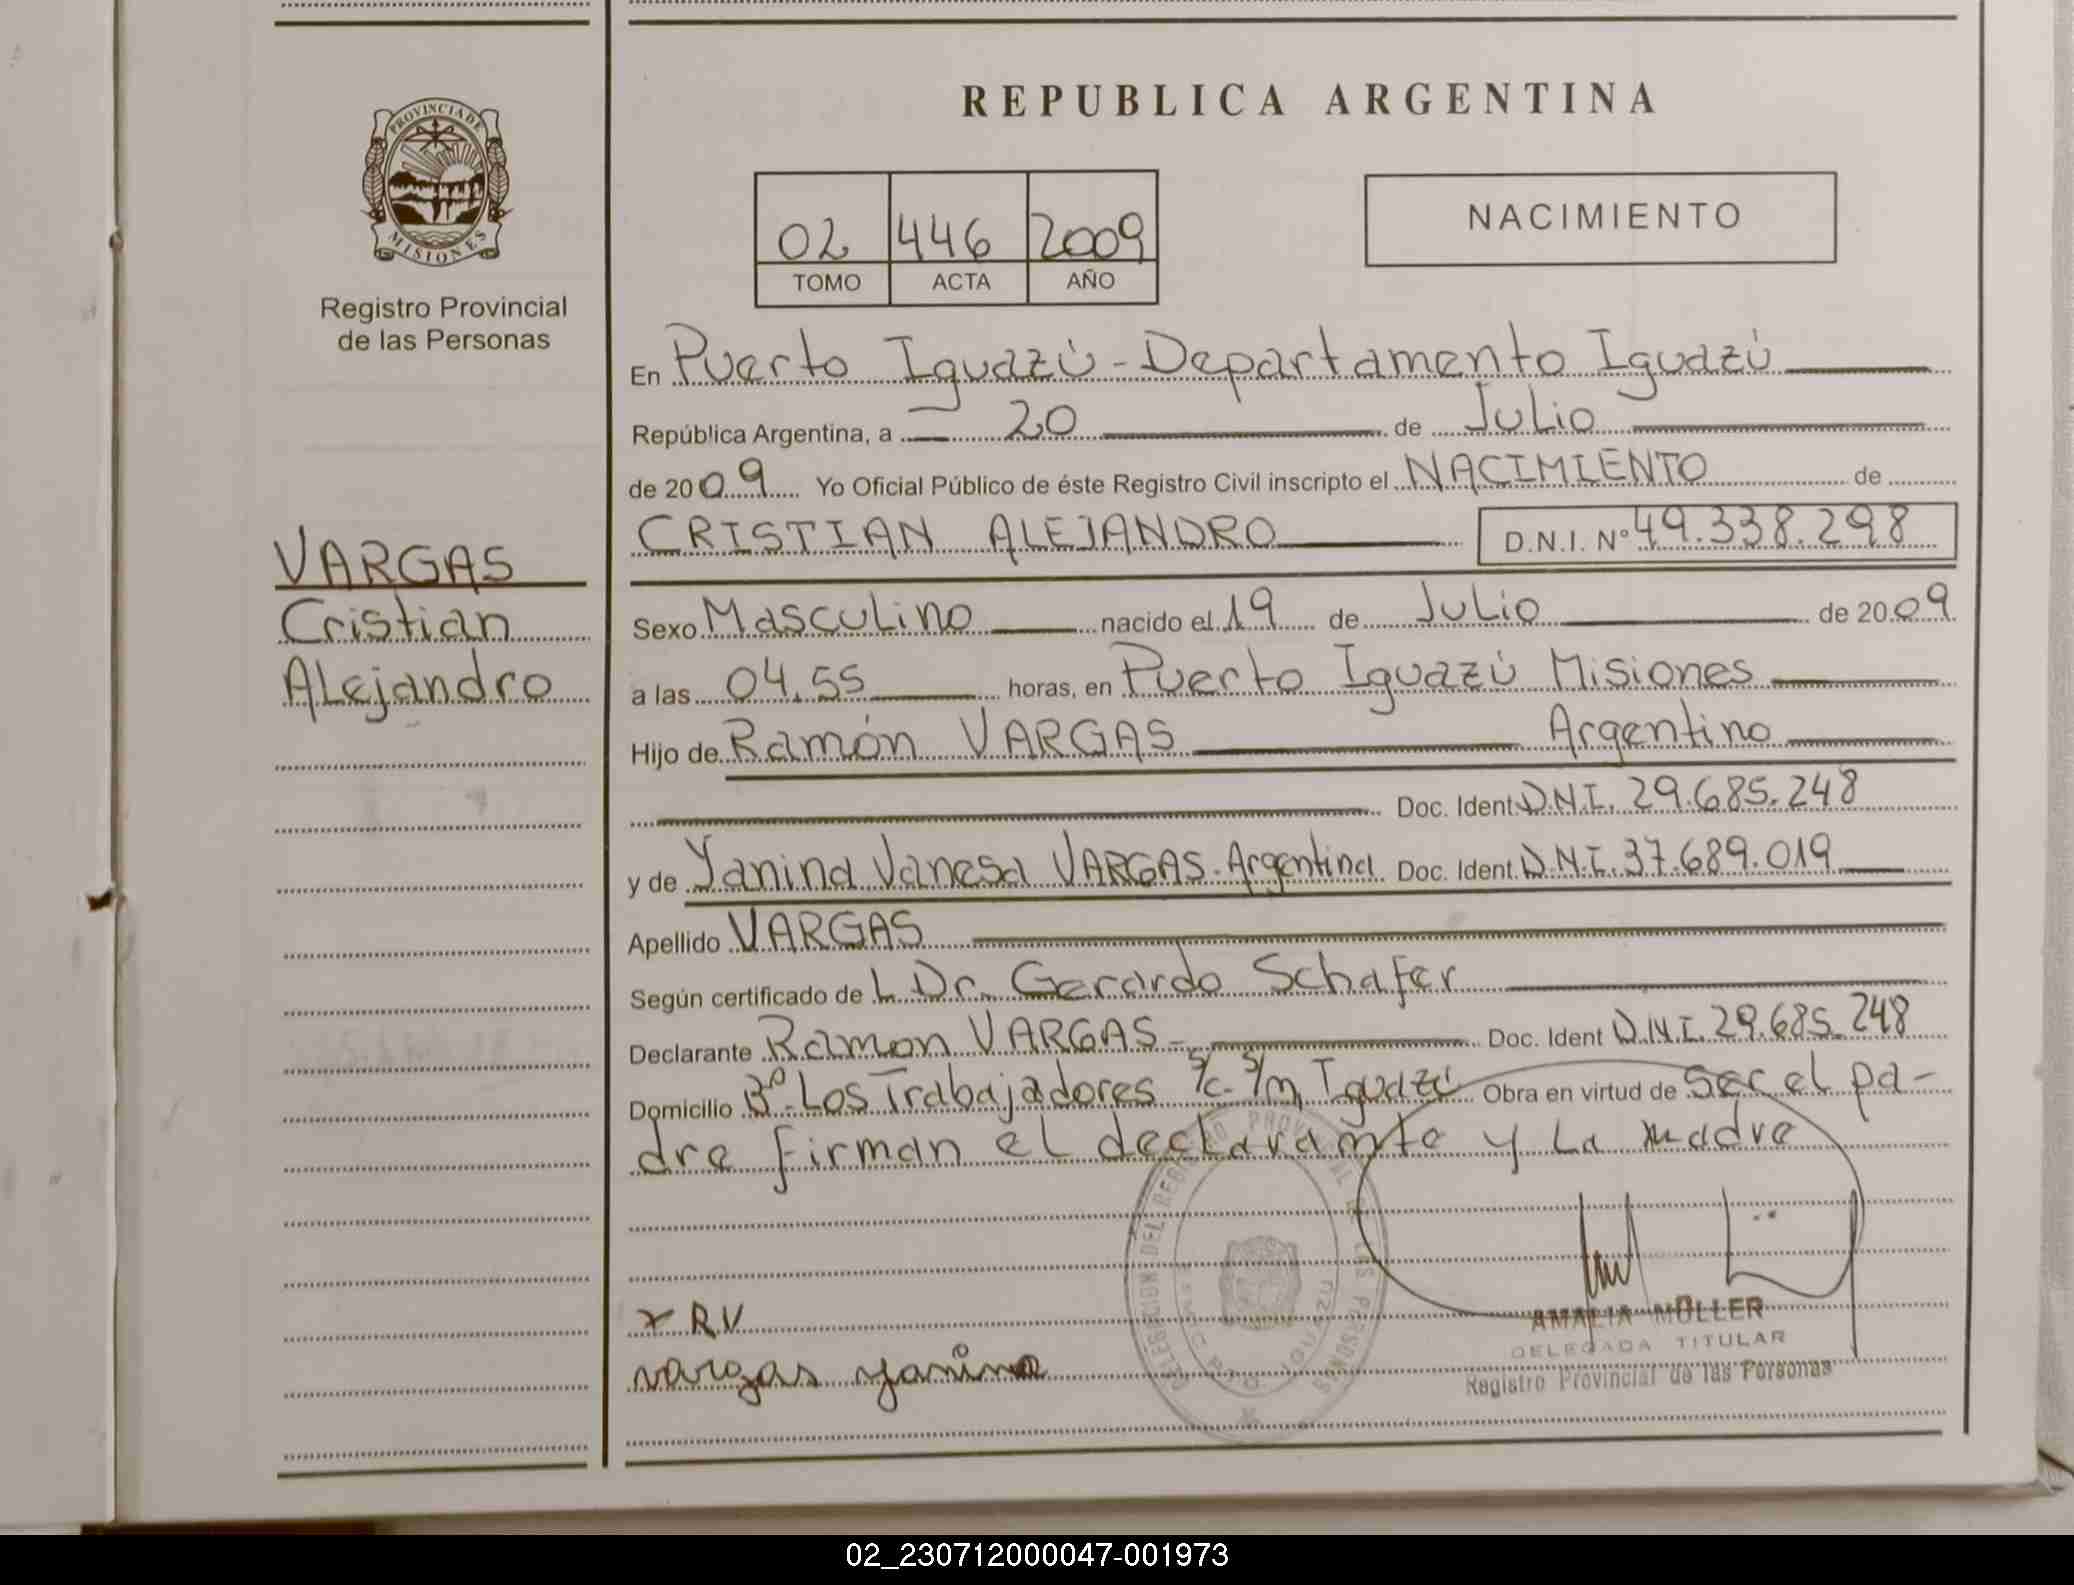 REPUBLICA ARGENTINA
PROVINCIA DE
MISIONES
Registro Provincial
de las Personas
02 446 2009
TOMO ACTA AÑO
NACIMIENTO
En Puerto Iguazú - Departamento Iguazú
República Argentina, a 20 de Julio
de 2009 Yo Oficial Público de éste Registro Civil inscripto el NACIMIENTO de
CRISTIAN ALEJANDRO D.N.I. Nº 49.338.298
VARGAS
Cristian
Alejandro
Sexo Masculino nacido el 19 de Julio de 2009
a las 04.55 horas, en Puerto Iguazú Misiones
Hijo de Ramón VARGAS Argentino
Doc. Ident D.N.I. 29.685.248
y de Yanina Vanesa VARGAS. Argentina Doc. Ident. D.N.I. 37.689.019
Apellido VARGAS
Según certificado de L Dr. Gerardo Schafer
Declarante Ramon VARGAS - Doc. Ident D.N.I. 29.685.248
Domicilio Bº. Los Trabajadores S/c. S/n Iguazú Obra en virtud de ser el pa-
dre firman el declarante y La madre
x R.V
vargas yanina
AMALIA MÜLLER
DELEGADA TITULAR
Registro Provincial de las Personas
02_230712000047-001973